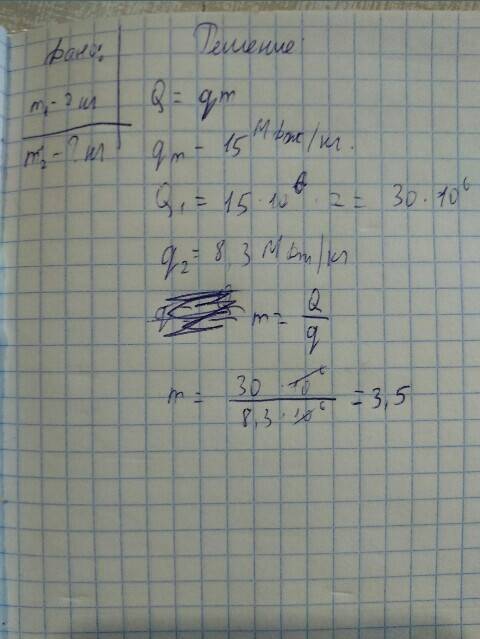 Дано:
Решение:
m₁ - 2 кг
m₂ - ? кг
Q = qm
qm - 15 МДж/кг.
Q₁ = 15 · 10⁶ · 2 = 30 · 10⁶
q₂ = 8,3 МДж/кг
m = Q/q
m = 30 · 10⁶ / 8,3 · 10⁶ = 3,5